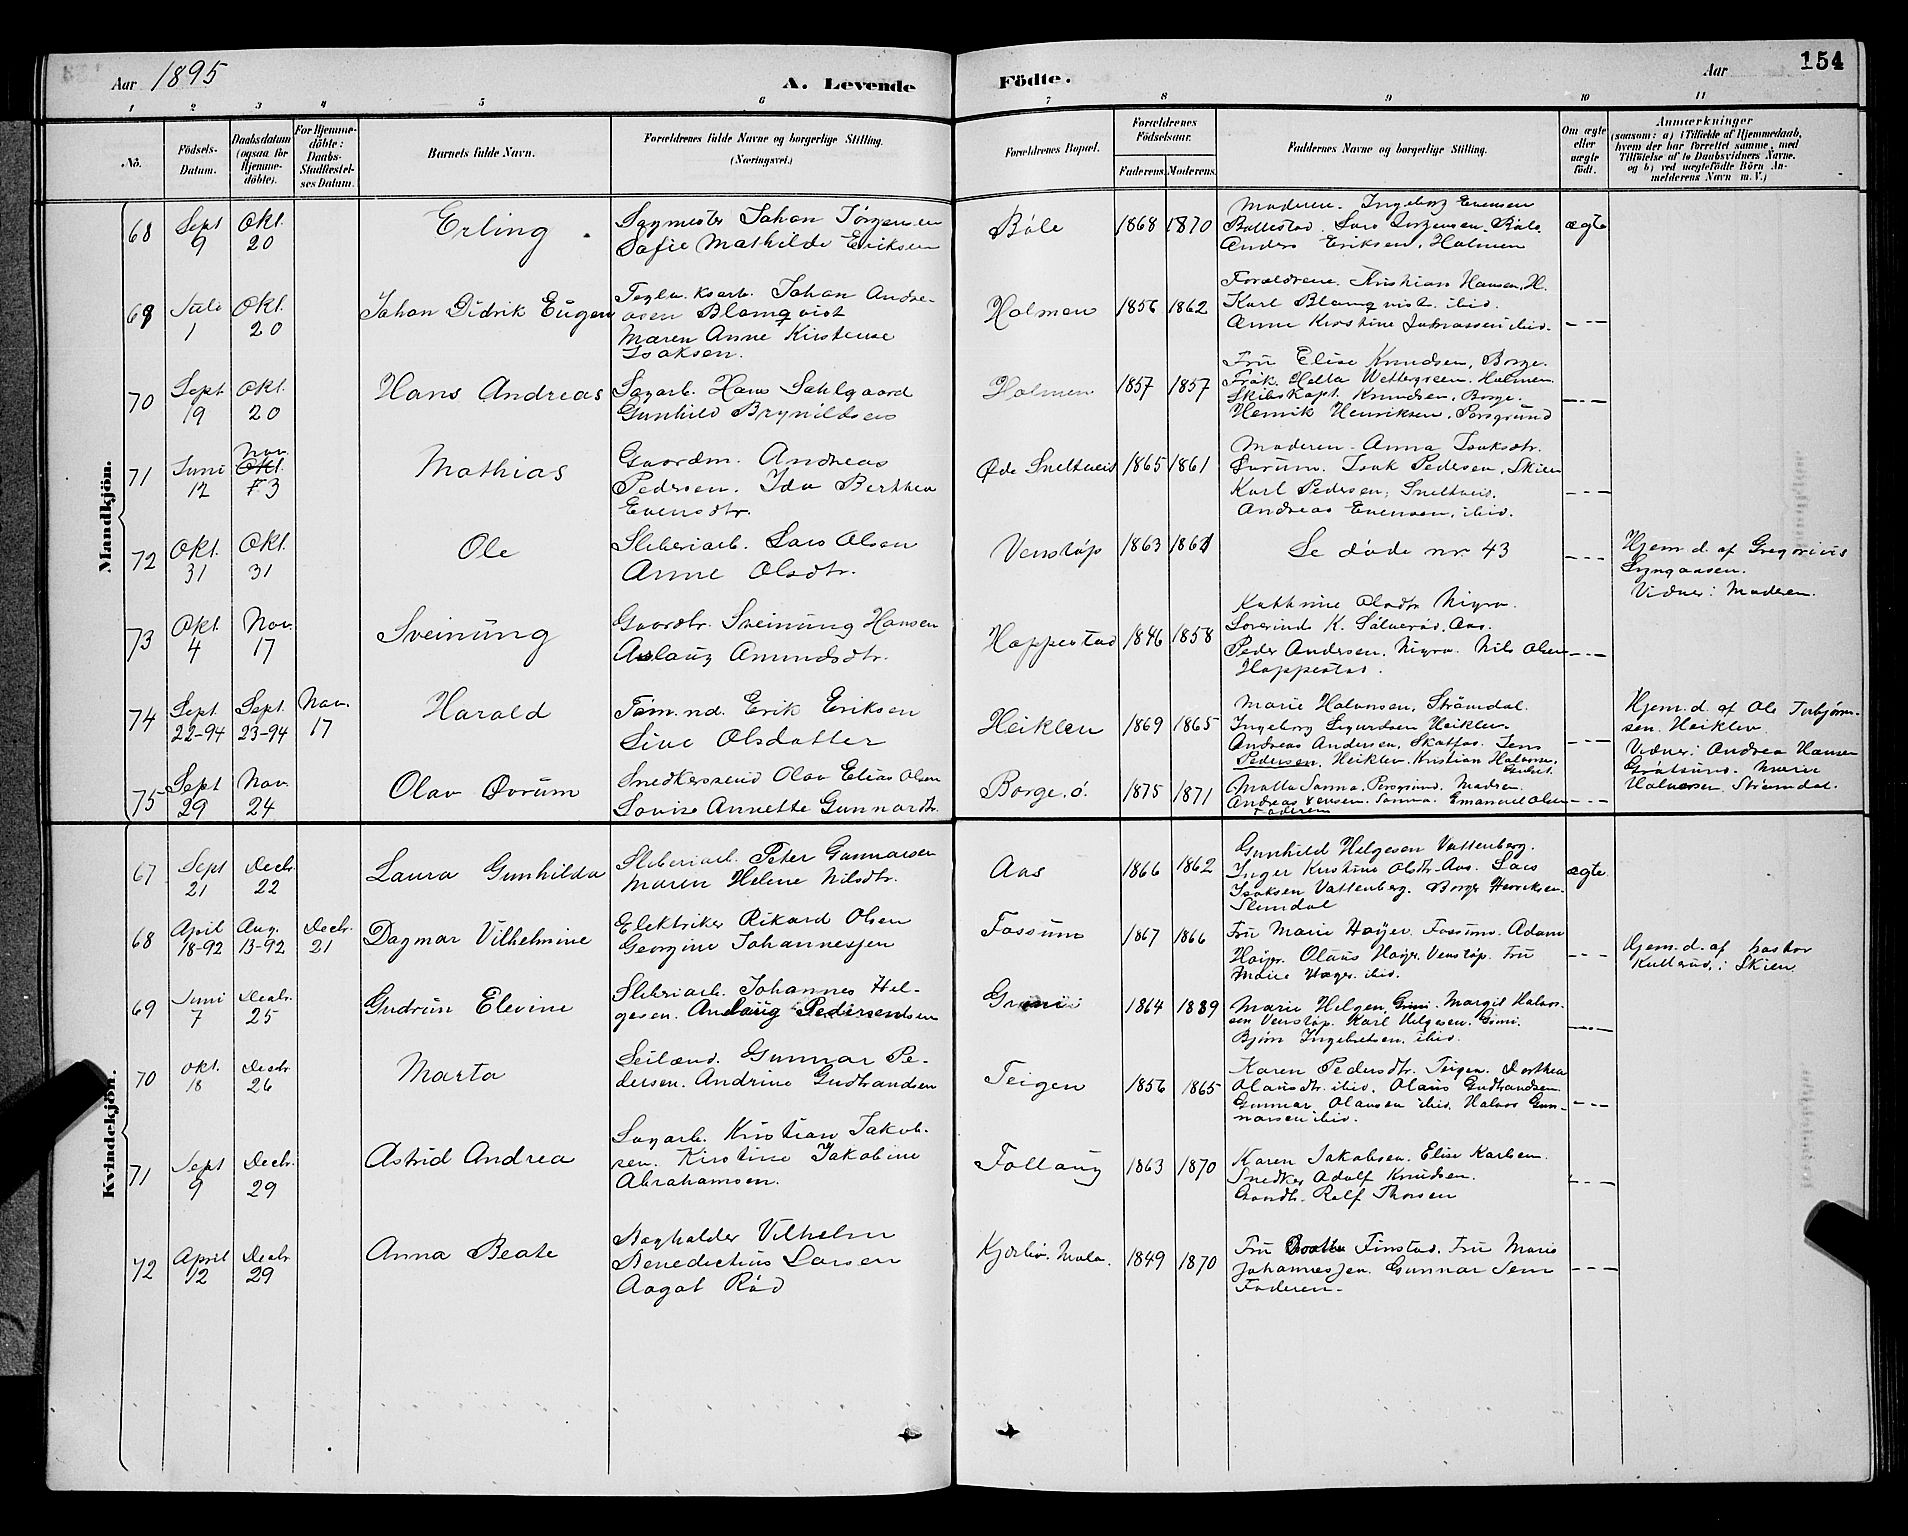 Aar 1895
A. Levende
Födte.
Aar
154
1 2 3 4 5 6 7 8 9 10 11
No.
Födsels-Datum.
Daabsdatum (ogsaa for Hjemme-döbte).
For Hjemme-döbte: Daabs-Stadfæstelses Datum.
Barnets fulde Navn.
Forældrenes fulde Navne og borgerlige Stilling. (Næringsvei.)
Forældrenes Bopæl.
Forældrenes Födselsaar.
Faderens. Moderens.
Faddernes Navne og borgerlige Stilling.
Om ægte eller uægte födt.
Anmærkninger
(saasom: a) i Tilfælde af Hjemmedaab,
hvem der har forrettet samme, med
Tilföielse af to Daabsvidners Navne,
og b) ved uægtefödte Börn An-
melderens Navn m. V.)
Mandkjön.
68 Sept 9 Okt. 20 Erling
Sagmester Johan Jörgensen
Sofie Mathilde Eriksen
Böle 1868 1870
Moderen. Ingeborg Evensen
Bollestad. Lars Jörgensen. Böle.
Anders Eriksen, Holmen
ægte
69 Juli 1 Okt. 20 Johan Didrik Eugen
Johan Andre-
asen Blomqvist
Maren Anne Kirstense
Isaksen.
Holmen 1856 1862
Forældrene. Kristian Hansen, H.
Karl Blomqvist. ibid.
Anne Kirstine ibid.
70 Sept 19 Okt. 20 Hans Andreas
Sagarb. Hans Sahlgaard
Gunhild Brynildsen
Holmen 1857 1857
Fru Elise Knudsen, Borge.
Frök. Helta Wettergreen. Holmen
Skibskapt. Knudsen, Borge.
Henrik Henriksen, Porsgrund
71 Juni 12 Nov. Okt. 3 Mathias
Gaardm. Andreas
Pedersen. Ida Berthea
Evensdtr.
Øde Sneltveit 1865 1861
Moderen. Anna Isaksdtr.
Isak Pedersen, Skien
Karl Pedersen, Sneltveit.
Andreas Evensen, ibid.
72 Okt. 31 Okt. 31 Ole
Sliberiarb. Lars Olsen
Anne Olsdtr.
Venstöp 1863 1861
Se döde nr 43
Hjem. d. af Gregorius
Vidner: Moderen.
73 Okt 4 Nov. 17 Sveinung
Gaardbr. Sveinung Hansen
Aslaug Amundsdtr.
Hoppestad 1846 1858
Kathrine Olsdtr Nigra.
Peder Andersen. Nigra. Nils Olsen
Hoppestad.
74 Sept. 22-94 Sept. 23-94 Nov. 17 Harald
Töm.nd. Erik Eriksen
Sine Olsdatter
Heiklev 1869 1865
Marie Halvorsen, Strömdal.
Ingeborg Sigurdsen Heiklev.
Andreas Andersen, Skotfos. Jens
Pedersen, Heiklev. Kristian Halvorsen,
Hjem. d. af Ole Torbjörn-
sen. Heiklev
Vidner: Andrea Hansen
Marie
Halvorsen, Strömdal.
75 Sept 29 Nov. 24 Olav Øvrum
Snedkersvend Olav Elias Olsen
Lovise Annette Gunnardtr.
Borge. ö. 1875 1871
Emanuel Olsen
Faderen
Kvindekjön.
67 Sept 21 Decbr. 22 Laura Gunhilda
Sliberiarb. Peter Gunnarsen
Maren Helene Nilsdtr.
Aas 1866 1862
Gunhild Helgesen Vattenberg.
Inger Kristine Olsdtr. Aas. Lars
Isaksen Vattenberg. Borger Henriksen.
Slemdal
ægte
68 April 18-92 Aug. 13-92 Decbr. 21 Dagmar Vilhelmine
Elektriker Rikard Olsen
Georgine Johannesjen
Fossum 1867 1866
Fru Marie Höyer. Fossum. Adam
Höyer. Olaus Höyer. Venstöp. Fru
Marie Höyer. ibid.
Hjem. d. af Pastor
Kullerud, i Skien
69 Juni 7 Decbr. 25 Gudrun Elevine
Sliberiarb. Johannes Hel-
gesen.
1864 1889
Marie Helgen, Margit Halvor-
sen Venstöp. Karl Helgesen.
Björn Ingebretsen, ibid.
70 Okt. 18 Decbr. 26 Marta
Gunnar Pe-
dersen. Andrine Gudbrandsen
Teigen 1856 1865
Karen Pedersdtr. Teigen. Dorthea
Olausdtr. ibid. Olaus Gudbrandsen.
Gunnar Olausen ibid. Halvor Gun-
narsen ibid.
71 Sept 9 Decbr. 29 Astrid Andrea
Sagarb. Kristian Jakob-
sen. Kirstine Jakobine
Abrahamsen.
Follaug 1863 1870
Karen Jakobsen. Elise Karlsen.
Snedker Adolf Knudsen.
Gaardbr. Rolf Thorsen
72 April 12 Decbr. 29 Anna Beate
Vilhelm
Benedictius Larsen
Aagot Röd
1849 1870
Fru Finstad. Fru Marie
Johannesjen. Gunnar Sem
Faderen.